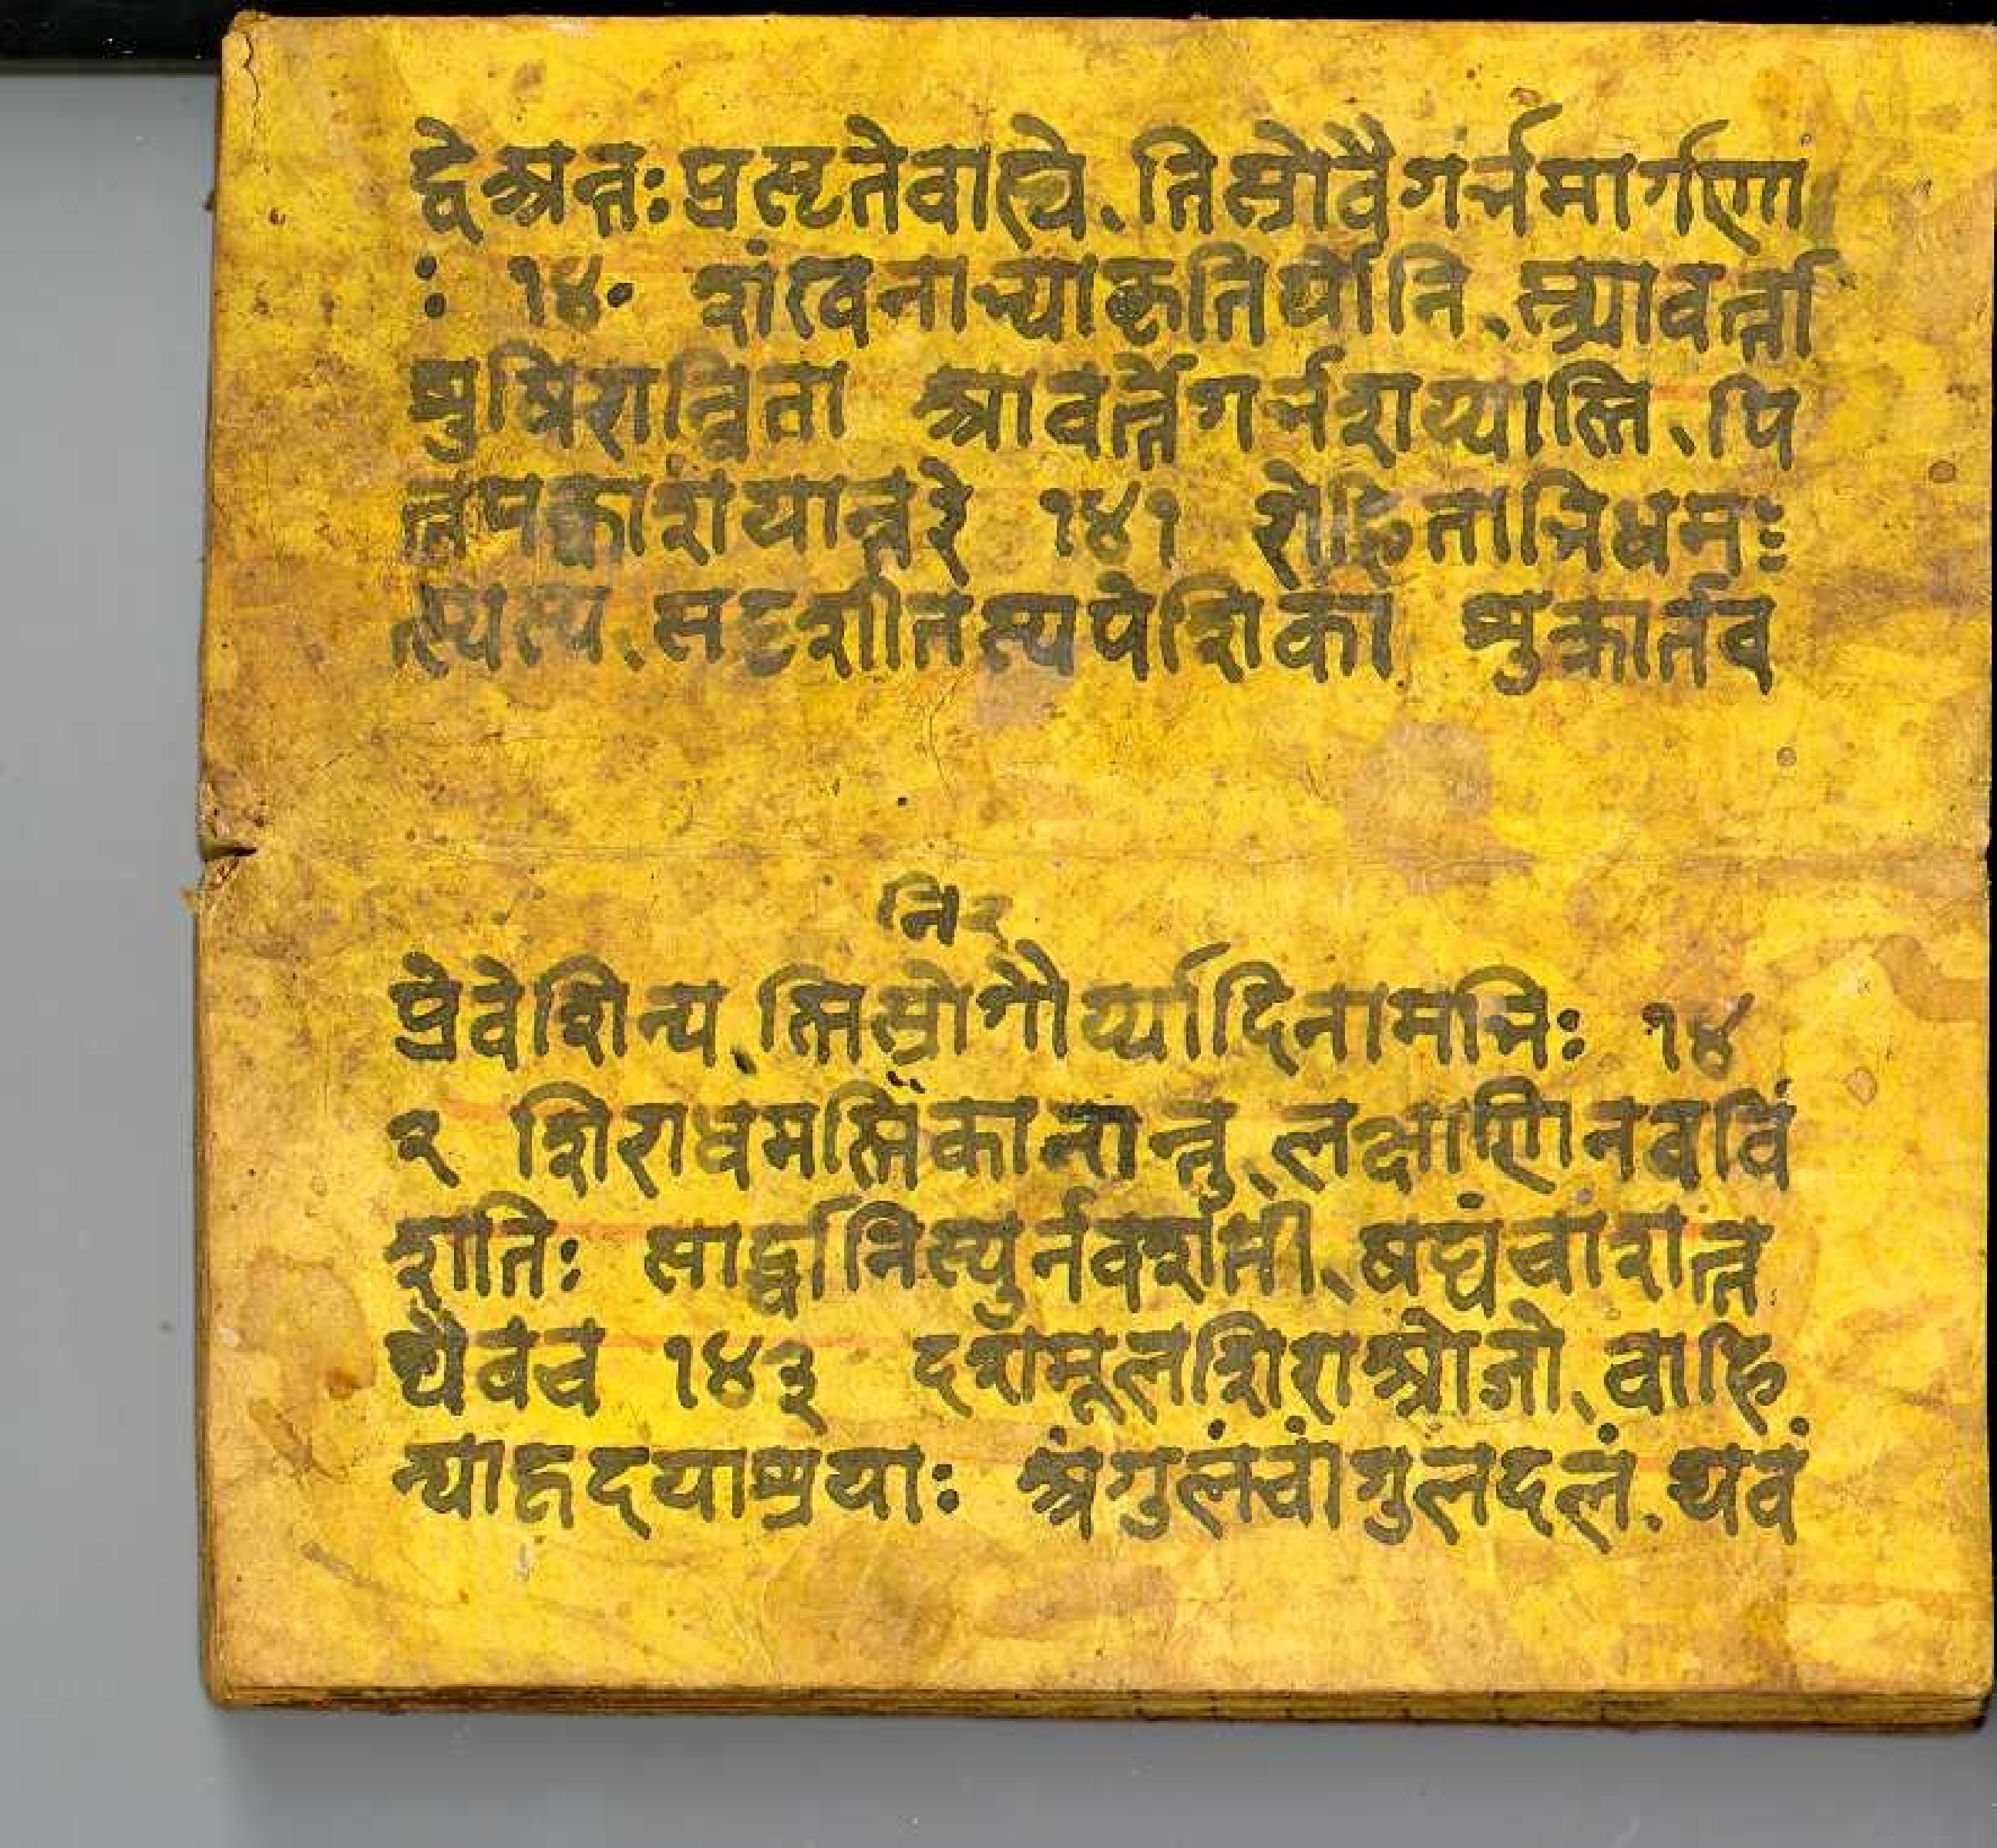 द्वेअन्तःप्रसृतेवाह्ये तिस्रोवैगर्भमार्गण
: १४० शंखनाभ्याकृतिर्योनि स्त्र्यावर्त्ता
षुषिरान्विता आवर्त्तेगर्भशय्यास्ति पि
त्तपक्वाशयान्तरे १४१ रोहिताभिधमः
त्स्यस्य सदृशीतस्यपेशिका शुक्रार्तव
नि२
प्रेवेशिन्य स्तिस्रोगौर्य्यादिनामभिः १४
२ शिराधमन्तिकानान्तु लक्षाणिनवविं
शतिः सार्द्धानिस्युर्नवशती षट्पंचाशत्त
थैवच १४३ दशमूलशिराओजो वाहि
न्याहृदयाश्रयाः अंगुलंचांगुलदलं यवं